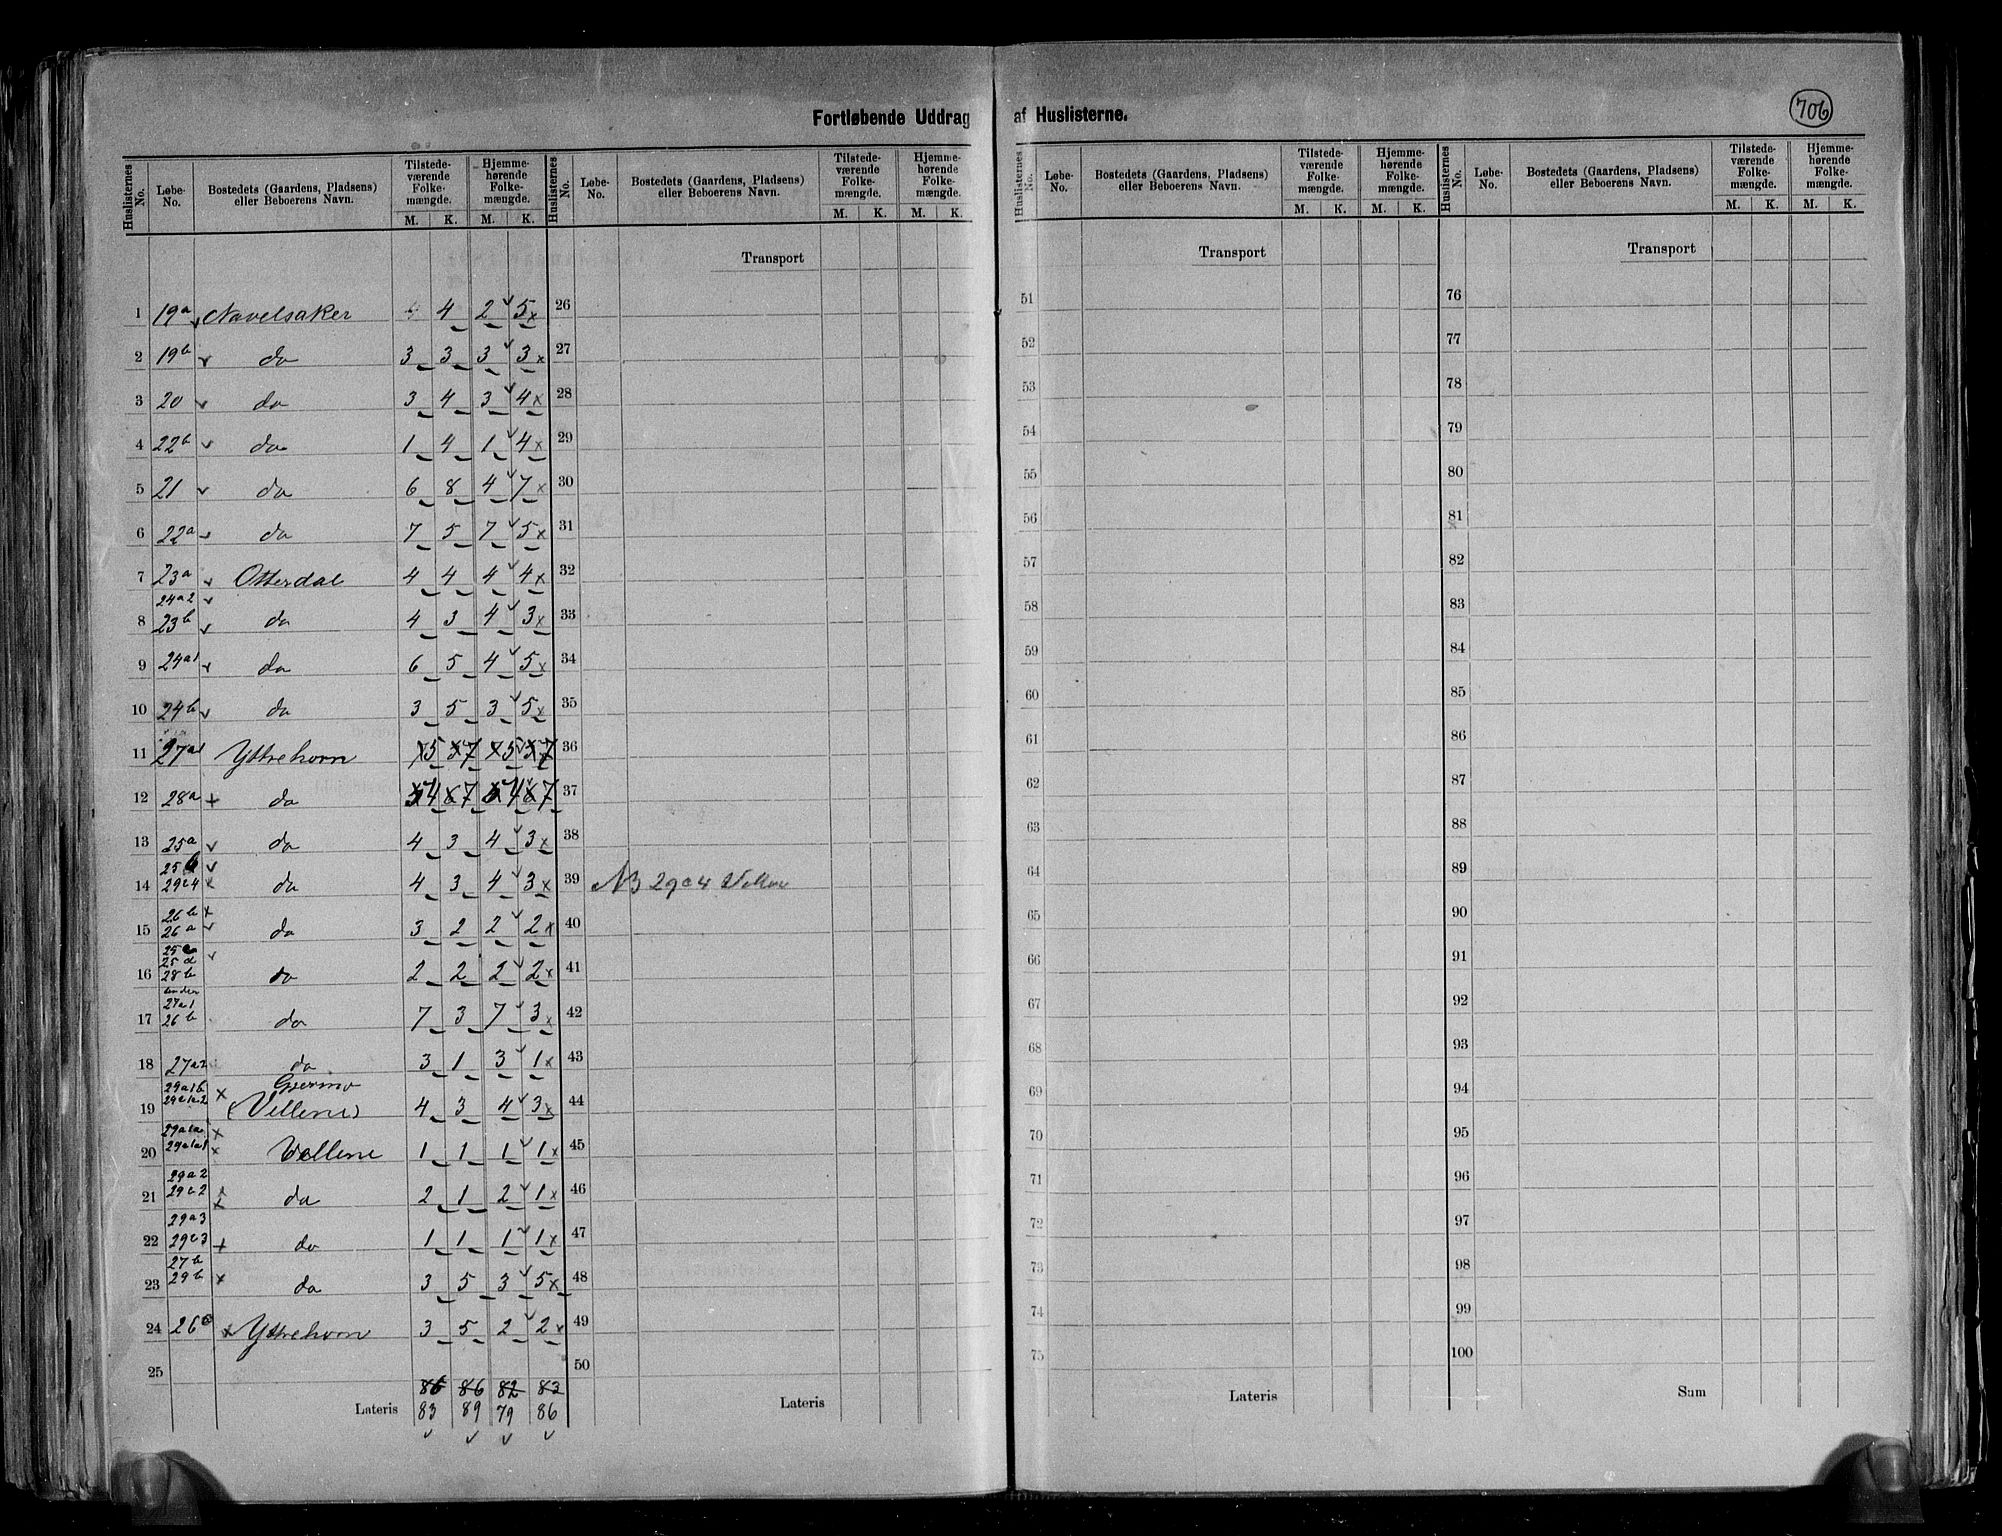 Fortløbende Uddrag af Huslisterne.
706
Huslisternes No. | Løbe-No. | Bostedets (Gaardens, Pladsens) eller Beboerens Navn. | Tilstedeværende Folkemængde. M. K. | Hjemmehørende Folkemængde. M. K.
Huslisternes No. | Løbe-No. | Bostedets (Gaardens, Pladsens) eller Beboerens Navn. | Tilstedeværende Folkemængde. M. K. | Hjemmehørende Folkemængde. M. K.
Huslisternes No. | Løbe-No. | Bostedets (Gaardens, Pladsens) eller Beboerens Navn. | Tilstedeværende Folkemængde. M. K. | Hjemmehørende Folkemængde. M. K.
Huslisternes No. | Løbe-No. | Bostedets (Gaardens, Pladsens) eller Beboerens Navn. | Tilstedeværende Folkemængde. M. K. | Hjemmehørende Folkemængde. M. K.
Transport Transport Transport
1 19a Navelsaker 4 4 2 5 26 51 76
2 19b do 3 3 3 3 27 52 77
3 20 do 3 4 3 4 28 53 78
4 22b do 1 4 1 4 29 54 79
5 21 do 6 8 4 7 30 55 80
6 22a do 7 5 7 5 31 56 81
7 23a Otterdal 4 4 4 4 32 57 82
24a2
8 23b do 4 3 4 3 33 58 83
9 24a1 do 6 5 4 5 34 59 84
10 24b do 3 5 3 5 35 60 85
11 27a1 Yttrehorn 5 7 5 7 36 61 86
12 28a do 4 7 4 7 37 62 87
13 25a do 4 3 4 3 38 63 88
25b
14 29c4 do 4 3 4 3 39 NB 29c4 64 89
26b
15 26a do 3 2 2 2 40 65 90
25c
25d
16 28b do 2 2 2 2 41 66 91
under
27a1
17 26b do 7 3 7 3 42 67 92
18 27a2 do 3 1 3 1 43 68 93
29a1b
19 (Vellene) 4 3 4 3 44 69 94
20 29a1a1 Vellene 1 1 1 1 45 70 95
29a2
21 29c2 do 2 1 2 1 46 71 96
29a3
22 29c3 do 1 1 1 1 47 72 97
27b
23 29b do 3 5 3 5 48 73 98
24 26c Yttrehorn 3 5 2 2 49 74 99
25 50 75 100
86 86 82 83
Lateris 83 89 79 86 Lateris Lateris Sum